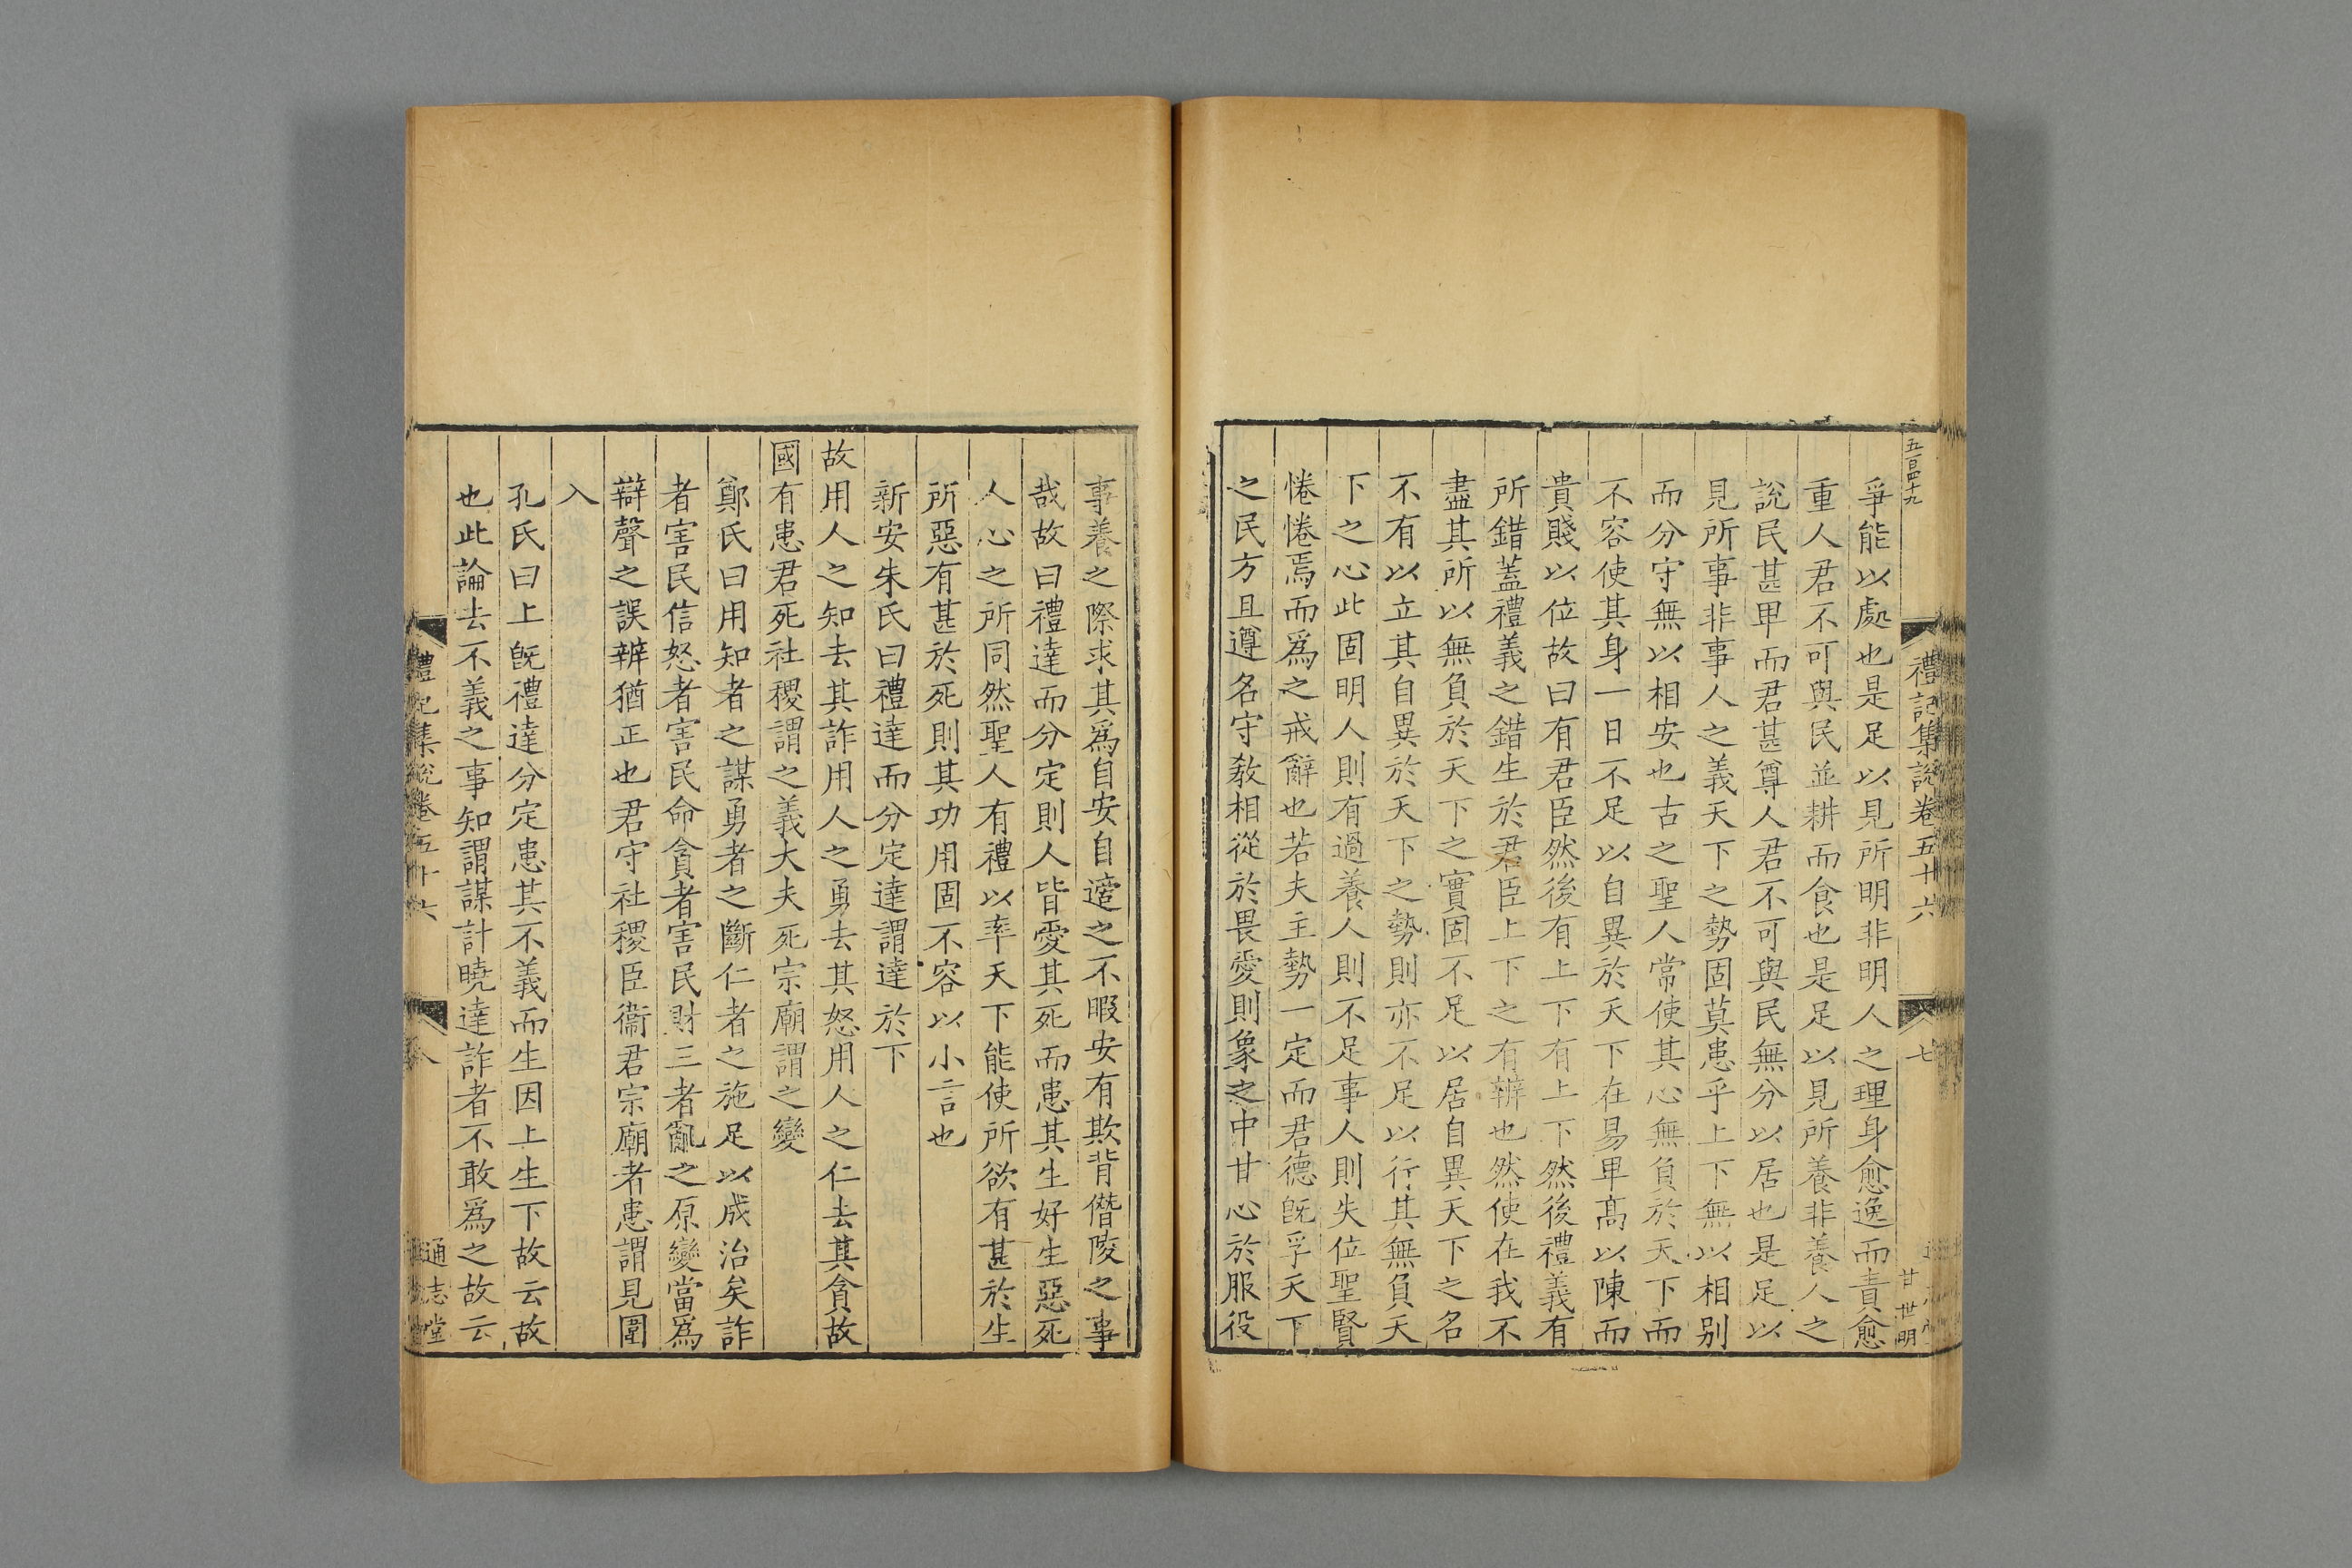 五百四十九
禮記集說卷五十六
七
甘世明
爭能以處也是足以見所明非明人之理身愈逸而責愈
重人君不可與民並耕而食也是足以見所養非養人之
說民甚卑而君甚尊人君不可與民無分以居也是足以
見所事非事人之義天下之勢固莫患乎上下無以相別
而分守無以相安也古之聖人常使其心無負於天下而
不容使其身一日不足以自異於天下在易卑高以陳而
貴賤以位故曰有君臣然後有上下有上下然後禮義有
所錯蓋禮義之錯生於君臣上下之有辨也然使在我不
盡其所以無負於天下之實固不足以居自異天下之名
不有以立其自異於天下之勢則亦不足以行其無負天
下之心此固明人則有過養人則不足事人則失位聖賢
惓惓焉而爲之戒辭也若夫主勢一定而君德旣孚天下
之民方且遵名守敎相從於畏愛則象之中甘心於服役
事養之際求其爲自安自適之不暇安有欺背僭陵之事
哉故曰禮達而分定則人皆愛其死而患其生好生惡死
人心之所同然聖人有禮以率天下能使所欲有甚於生
所惡有甚於死則其功用固不容以小言也
新安朱氏曰禮達而分定達謂達於下
故用人之知去其詐用人之勇去其怒用人之仁去其貪故
國有患君死社稷謂之義大夫死宗廟謂之變
鄭氏曰用知者之謀勇者之斷仁者之施足以成治矣詐
者害民信怒者害民命貪者害民財三者亂之原變當爲
辯聲之誤辨猶正也君守社稷臣衞君宗廟者患謂見圍
入
孔氏曰上旣禮達分定患其不義而生因上生下故云故
也此論去不義之事知謂謀計曉達詐者不敢爲之故云
禮記集說卷五十六
八
通志堂